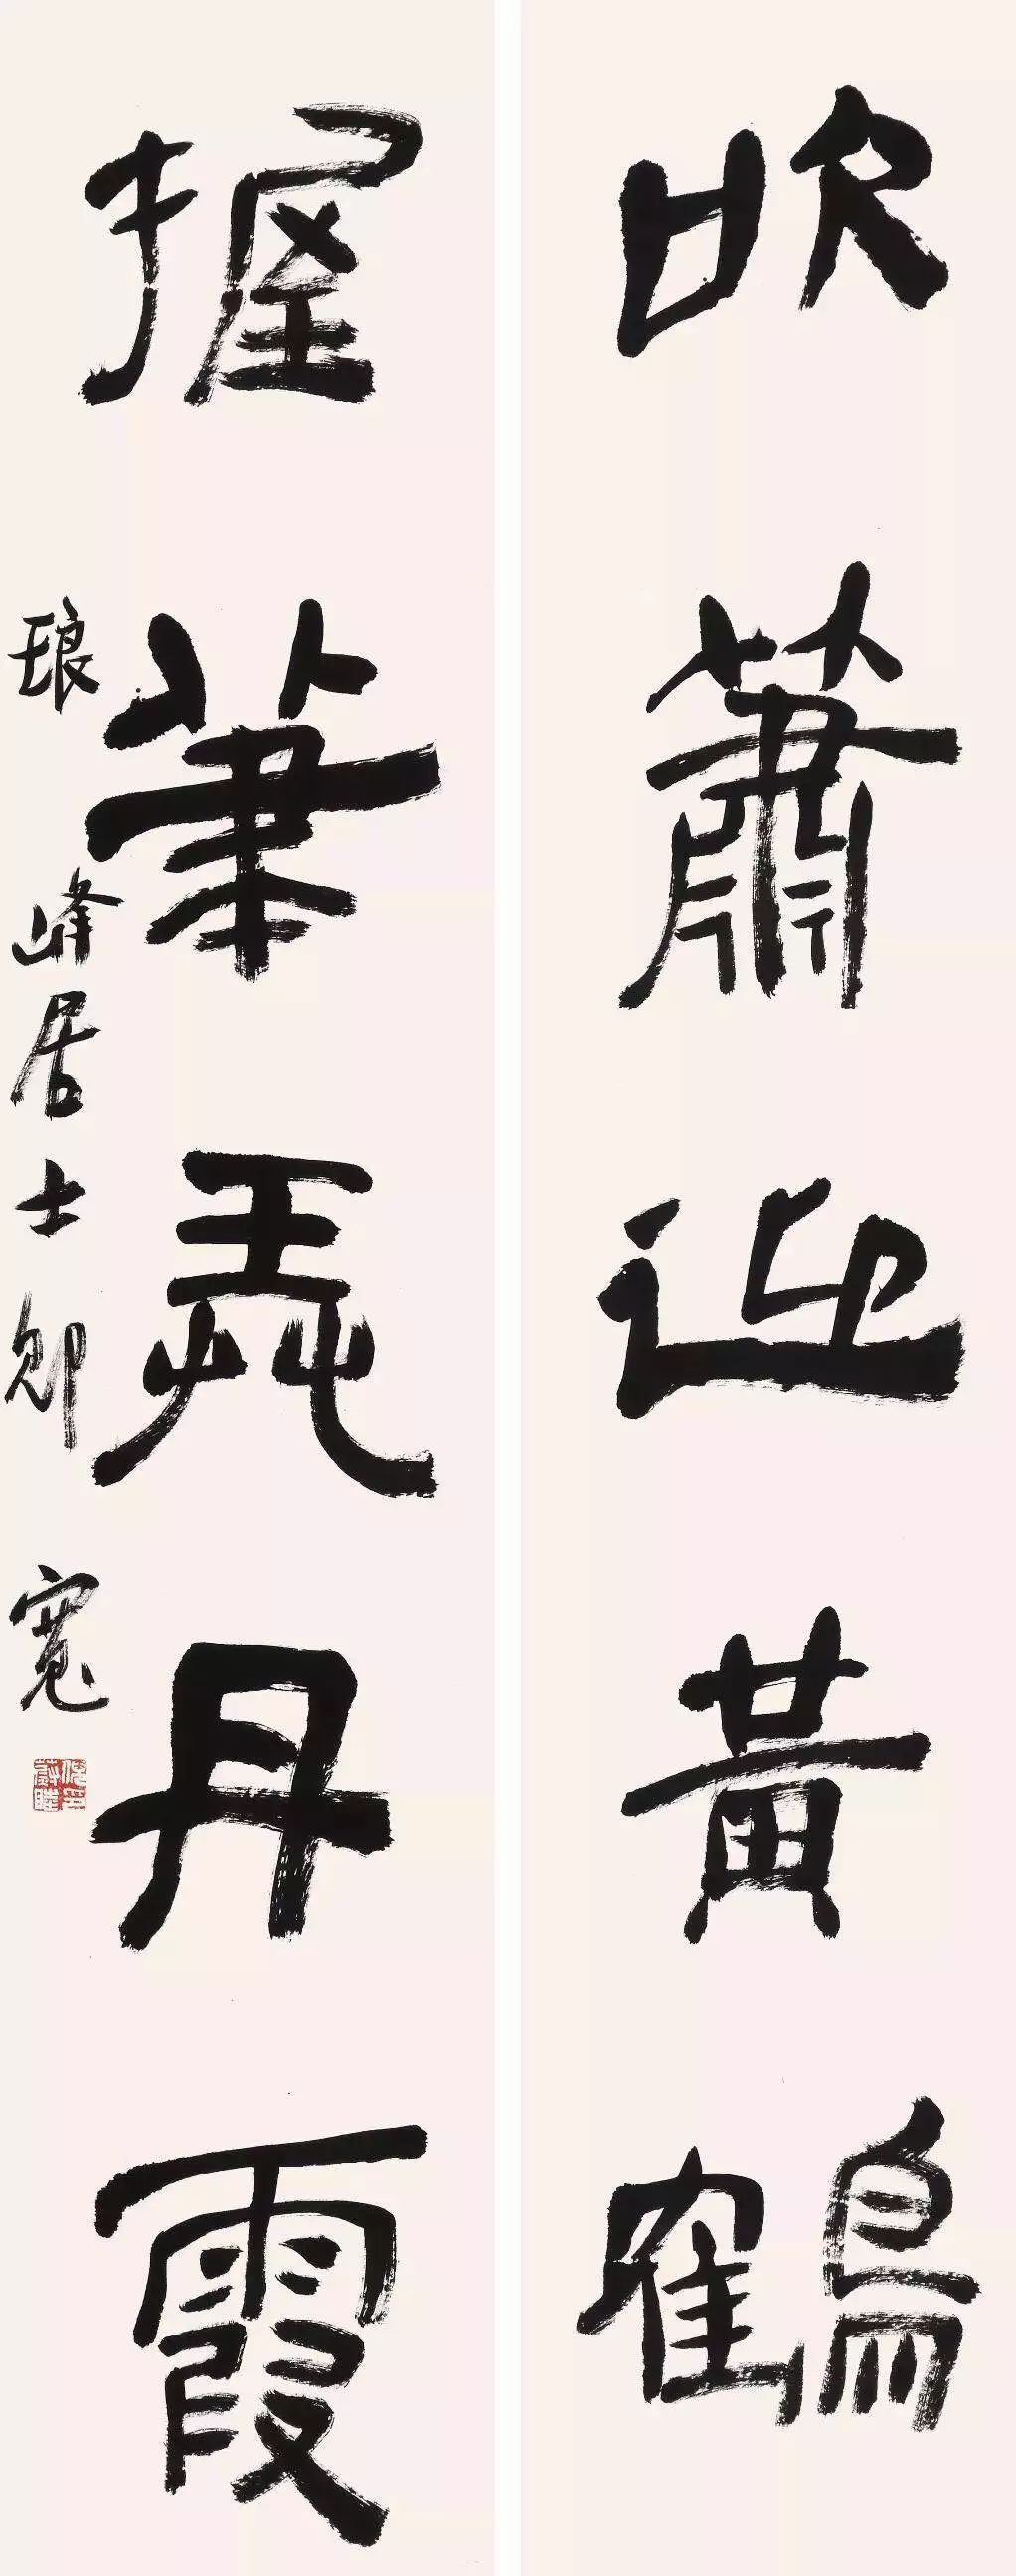 吹簫迎黃鶴
握筆弄丹霞
琅峰居士 寬